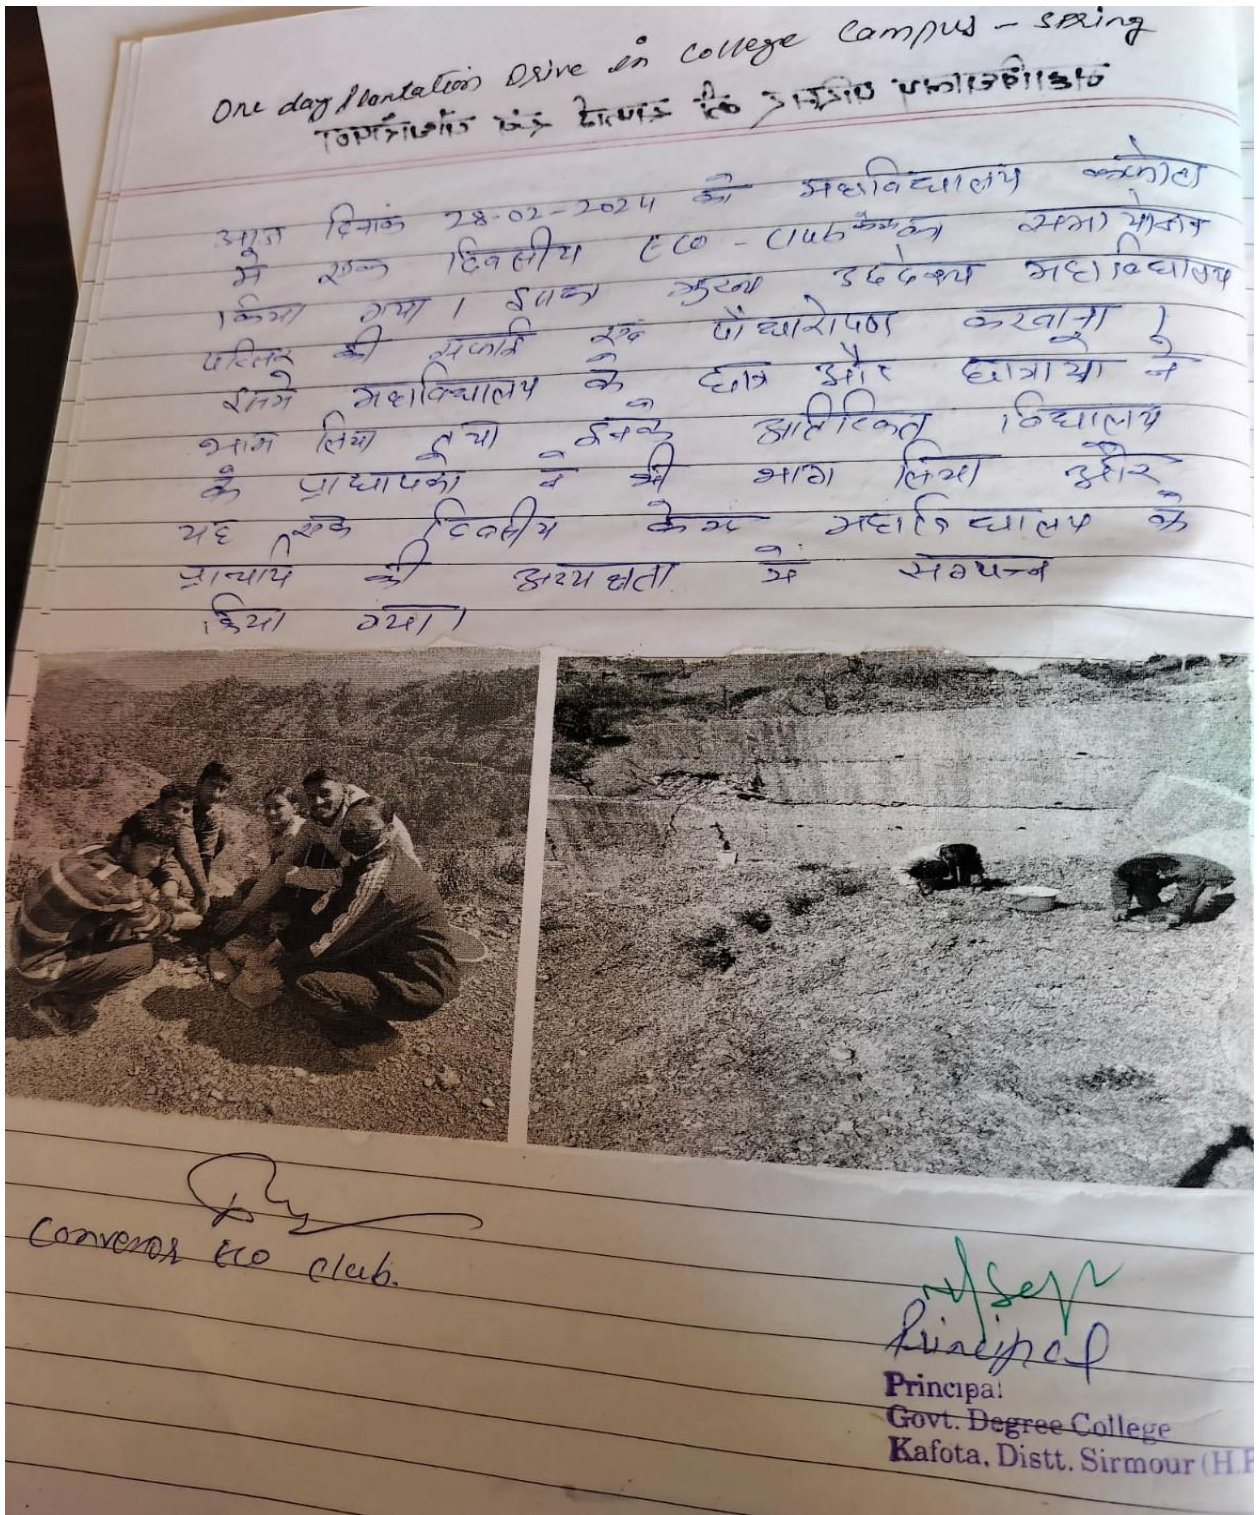 One day Plantation Drive in College Campus - Spring
आज दिनांक 28-02-2024 को महाविद्यालय कफोटा
में एक दिवसीय ECO - Club कैम्प का समायोजन
किया गया। इसका मुख्य उद्देश्य महाविद्यालय
परिसर की सफाई एवं पौधारोपण करवाना।
इसमे महाविद्यालय के छात्र और छात्राओ ने
भाग लिया तथा इनके अतिरिक्त विद्यालय
के प्राध्यापको ने भी भाग लिया और
यह एक दिवसीय केम्प महाविद्यालय के
प्राचार्य की अध्यक्षता मे सम्पन्न
किया गया।
Convenor ECO Club.
Principal
Principal
Govt. Degree College
Kafota, Distt. Sirmour (H.P